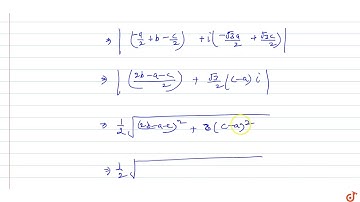 ⇒ | (-a/2 + b - c/2) + i(-√3a/2 + √3c/2) |
⇒ | (2b-a-c/2) + √3/2 (c-a) i |
⇒ 1/2 √(2b-a-c)² + 3(c-a)²
⇒ 1/2 √